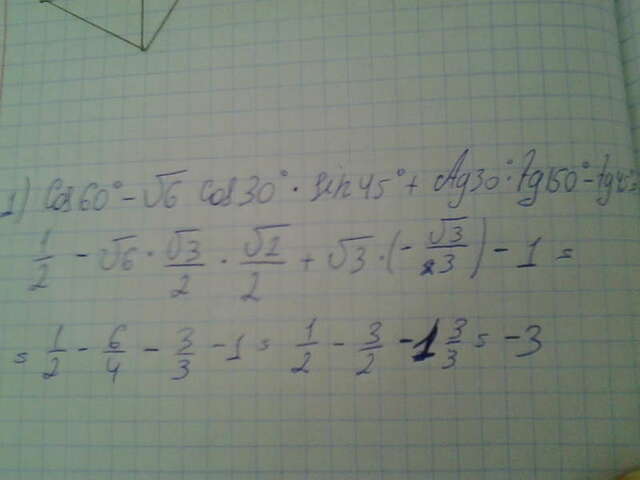 1) Cos60° - √6 Cos30° · sin45° + ctg30° · tg150° - tg45°
1/2 - √6 · √3/2 · √2/2 + √3 · (-√3/3) - 1 =
= 1/2 - 6/4 - 3/3 - 1 = 1/2 - 3/2 - 1 3/3 = -3